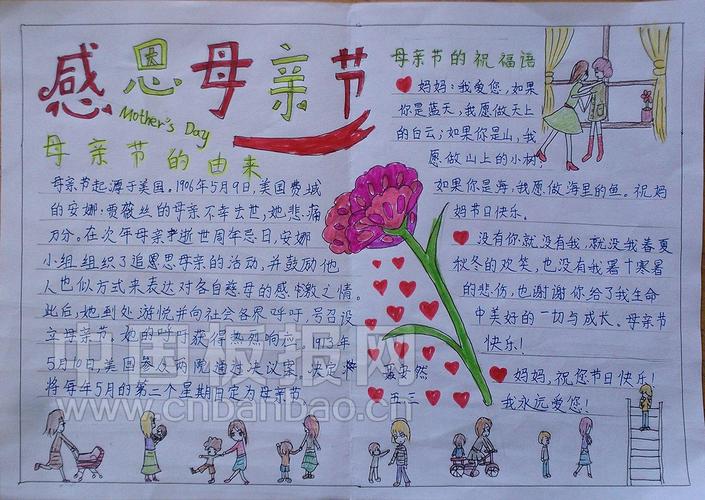 感恩母亲节
Mother's Day
母亲节的由来
母亲节起源于美国,1906年5月9日,美国费城
的安娜·贾薇丝的母亲不幸去世,她悲痛
万分。在次年母亲逝世周年忌日,安娜
小组组织了追思母亲的活动,并鼓励他
人也似方式来表达对各自慈母的感激之情。
此后,她到处游悦并向社会各界呼吁,号召设
立母亲节。她的呼吁获得热烈响应。1913年
5月10日,美国参众两院通过决议案,决定
将每年5月的第二个星期日定为母亲节
母亲节的祝福语
妈妈:我爱您,如果
你是蓝天,我愿做天上
的白云;如果你是山,我
愿做山上的小树,
如果你是海,我愿做海里的鱼。祝妈
妈节日快乐。
没有你就没有我,就没我春夏
秋冬的欢笑,也没有我暑十寒暑
的悲伤,也谢谢你给了我生命
中美好的一切与成长。母亲节
快乐!
妈妈,祝您节日快乐!
我永远爱您!
聂安然
五三
中国板报网
www.cnbanbao.cn